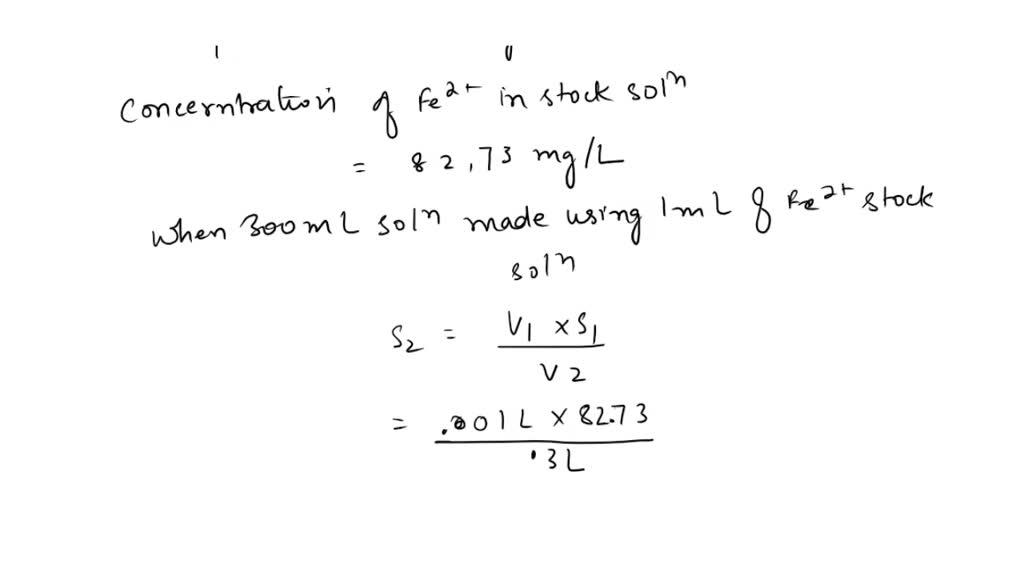 Concerntration of Fe²⁺ in stock solⁿ
= 82,73 mg/L
When 300 mL solⁿ made using 1mL of Fe²⁺ stock
solⁿ
S₂ = V₁ × S₁
V2
= .001L × 82.73
.3L